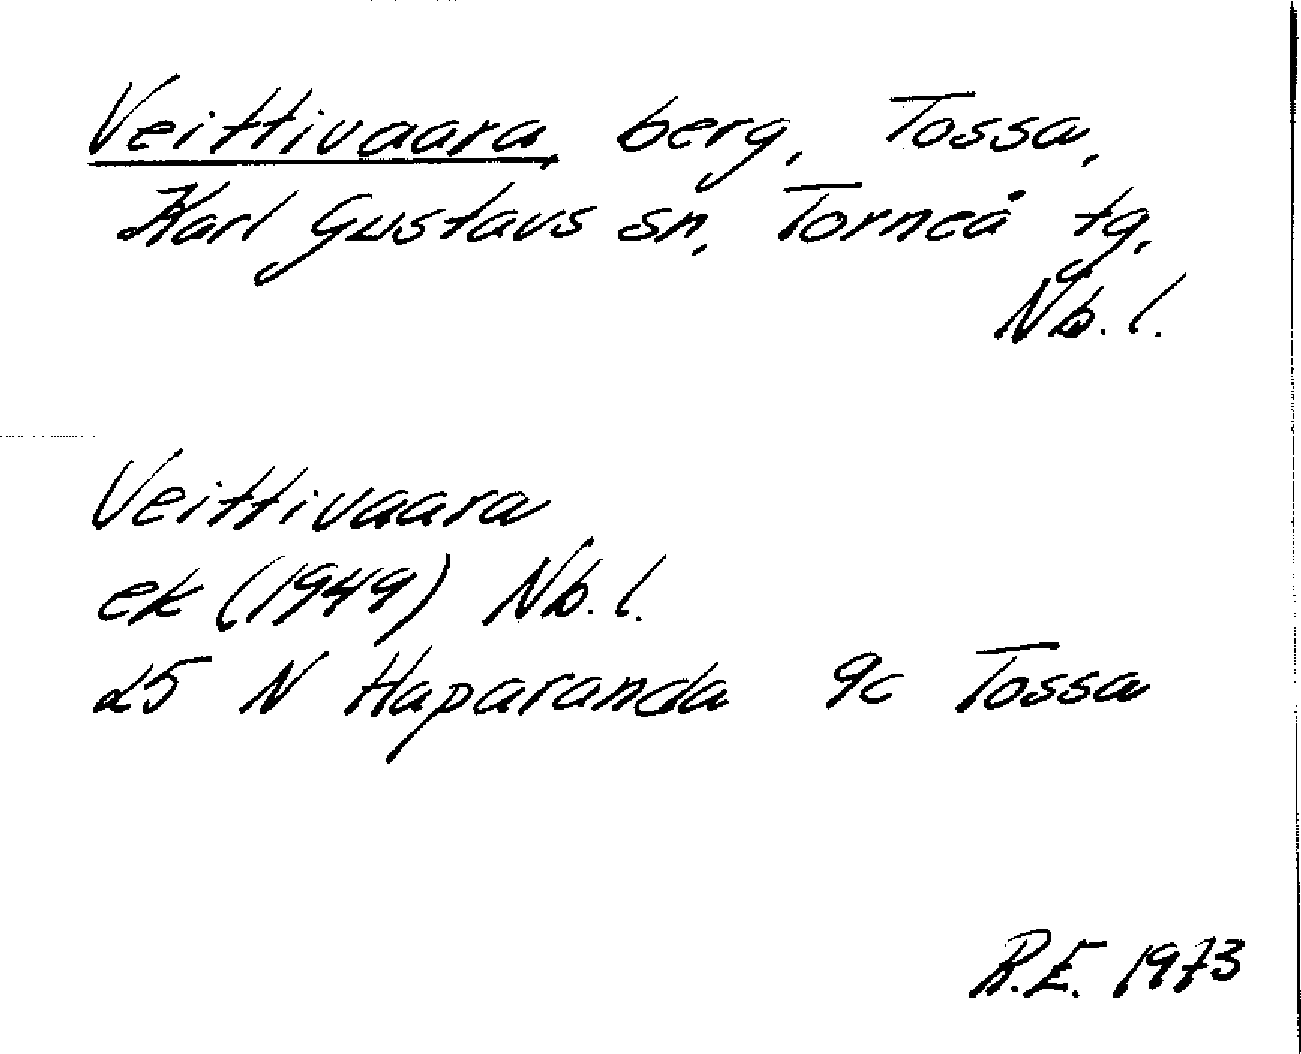 Veittivaara, berg, Tossa,
Karl Gustavs sn, Torneå tg,
Nb. l.
Veittivaara
ek (1949) Nb. l.
25 N Haparanda 9c Tossa
R.E. 1973